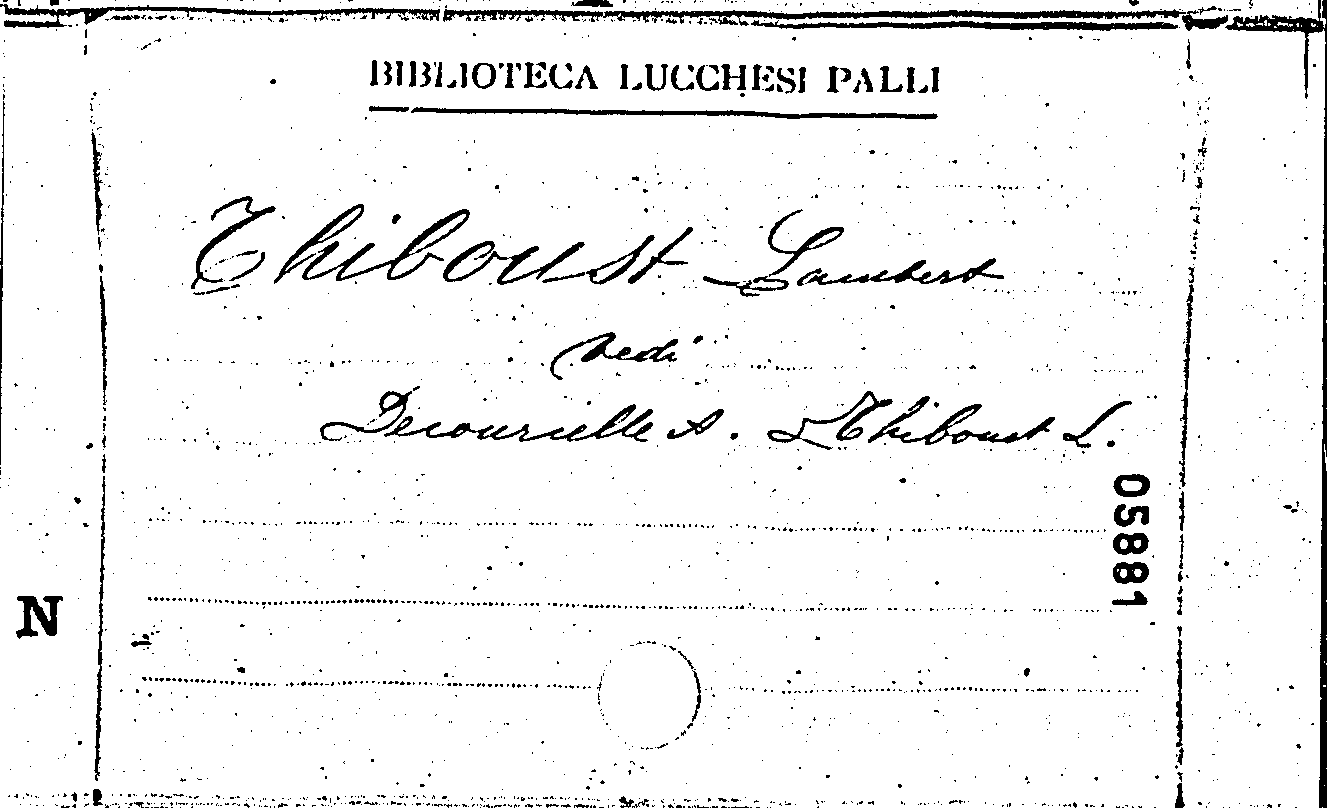 BIBLIOTECA LUCCHESI PALLI
Thiboust Lambert
vedi
Decourcelle A. & Thiboust L.
05881
N